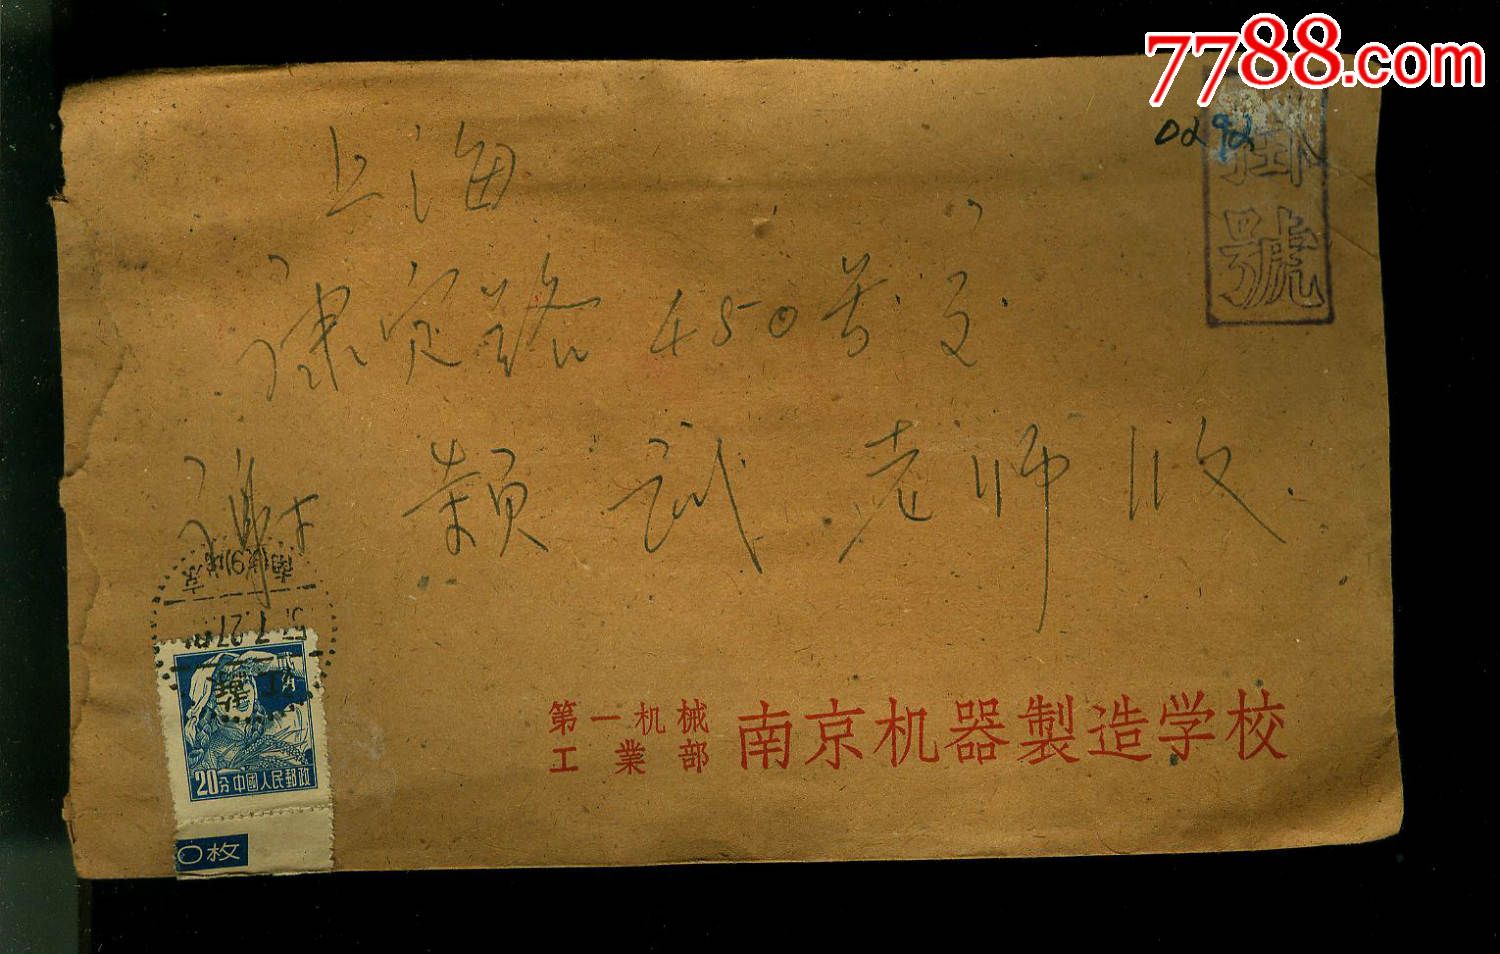 7788.com
0292
掛號
上海
康定路450号交
谢颖試老师收
南京
7.27
第一机械工業部 南京机器製造学校
贰角
20分中國人民郵政
0枚